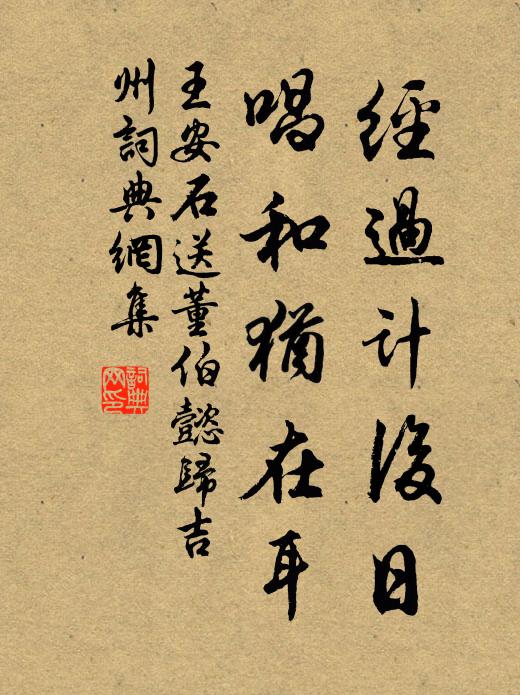 經過計後日
唱和猶在耳
王安石送董伯懿歸吉
州詞典網集
詞典
网印